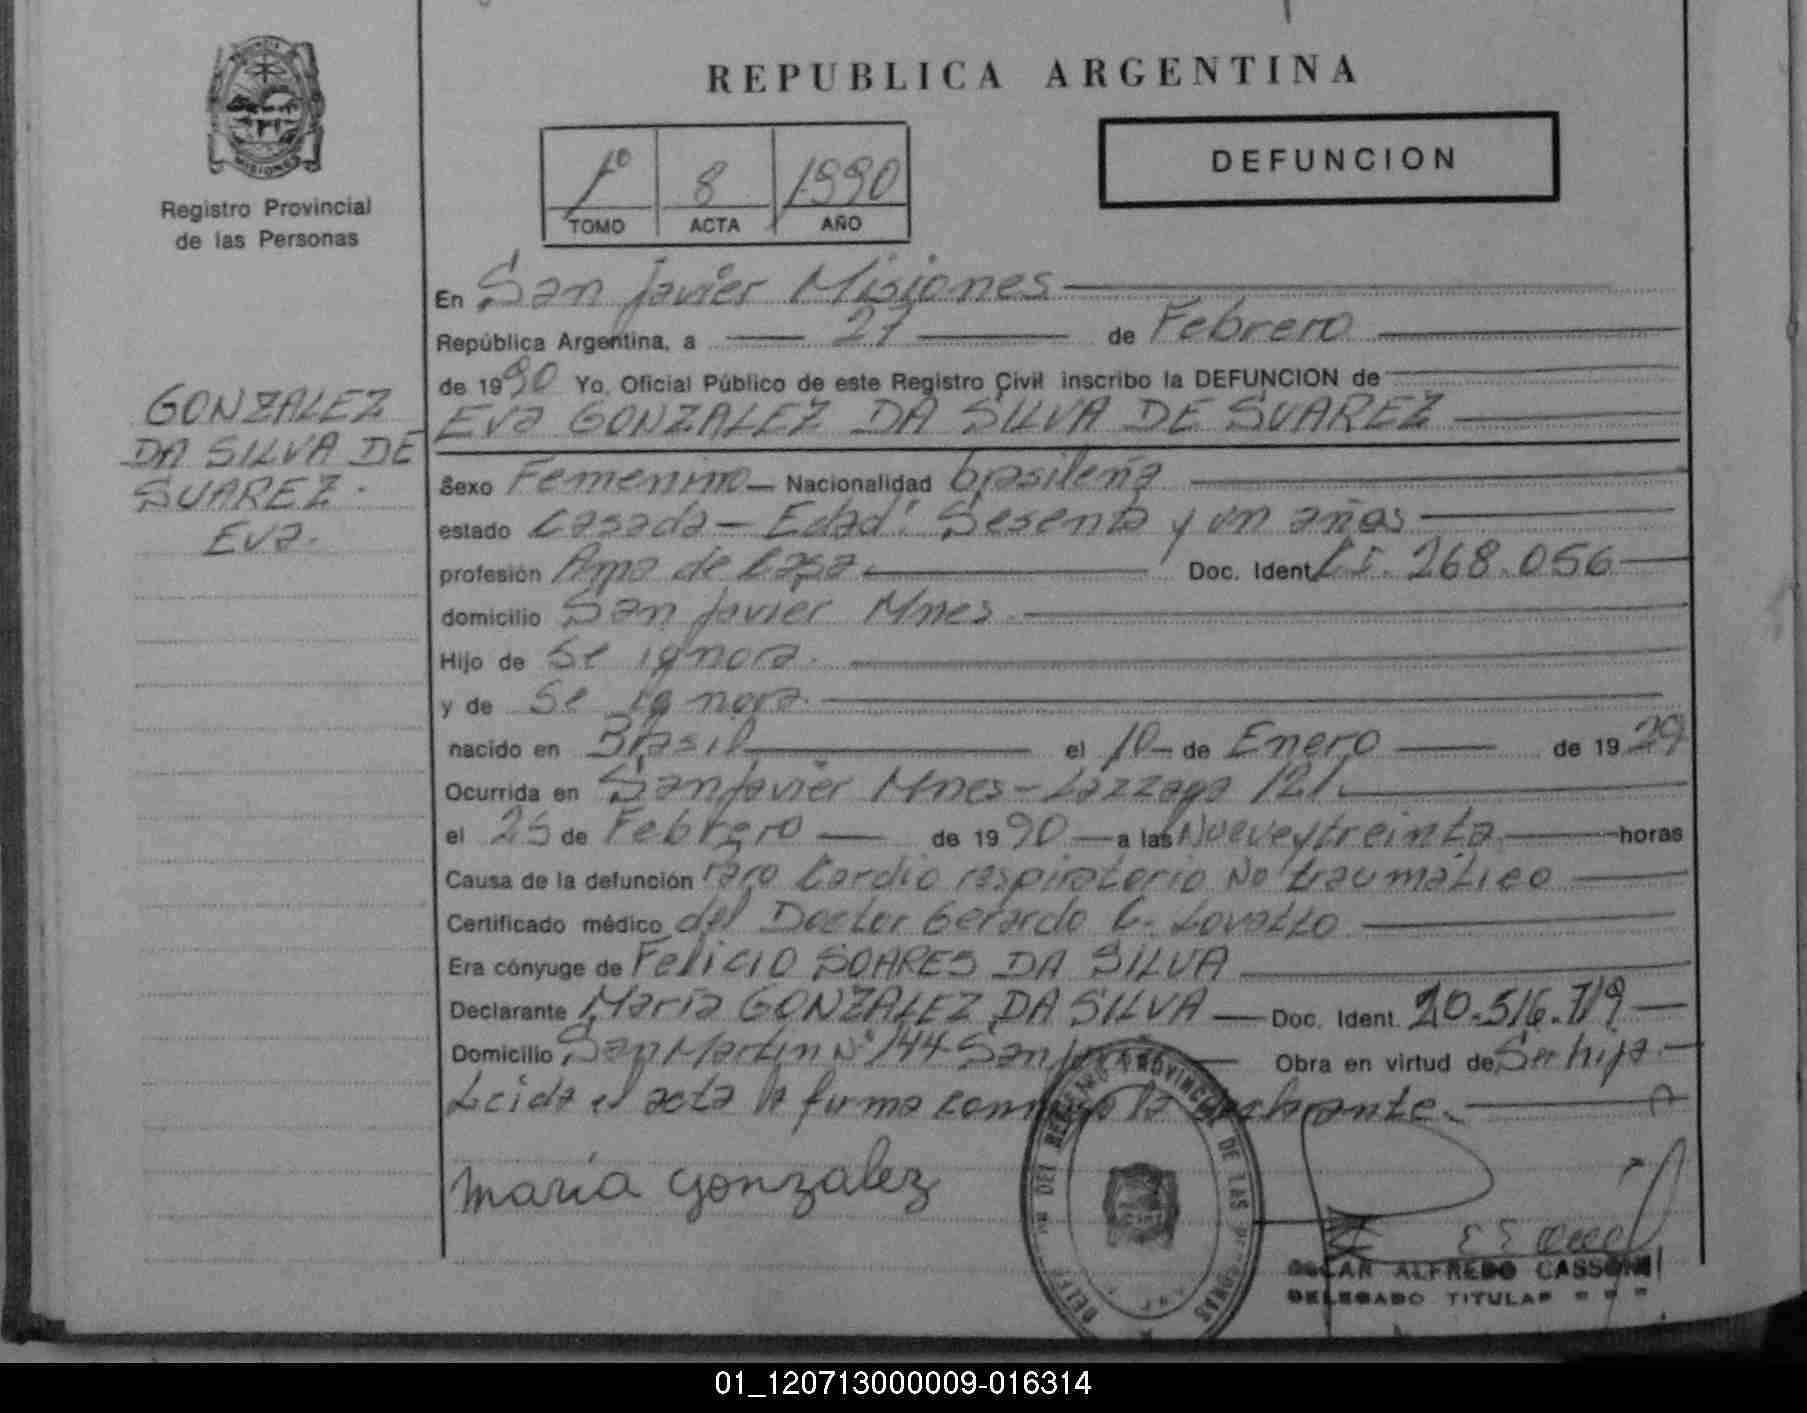 PROVINCIA
MISIONES
Registro Provincial
de las Personas
GONZALEZ
DA SILVA DE
SUAREZ.
Eva.
REPUBLICA ARGENTINA
1º 8 1990
TOMO ACTA AÑO
DEFUNCION
En San Javier Misiones
República Argentina, a 27 de Febrero
de 1990 Yo, Oficial Público de este Registro Civil inscribo la DEFUNCION de
Eva GONZALEZ DA SILVA DE SUAREZ
Sexo Femenino Nacionalidad brasileña
estado casada - Edad: Sesenta y un años
profesión Ama de casa Doc. Ident C.I. 268.056
domicilio San Javier Mnes.
Hijo de Se ignora.
y de Se ignora.
nacido en Brasil el 10 de Enero de 1929
Ocurrida en San Javier Mnes - 121
el 25 de Febrero de 1990 a las Nueve y treinta horas
Causa de la defunción Paro Cardio respiratorio No traumático
Certificado médico del Doctor Gerardo C. Lovatto
Era cónyuge de Felicio SOARES DA SILVA
Declarante María GONZALEZ DA SILVA Doc. Ident. 20.516.719
Domicilio San Martín Nº 144 San Javier Obra en virtud de Ser hija.
Leida el acta la firma conmigo la declarante.
María Gonzalez
DEL REGISTRO PROVINCIAL DE LAS PERSONAS
OSCAR ALFREDO CASSONI
DELEGADO TITULAR
01_120713000009-016314